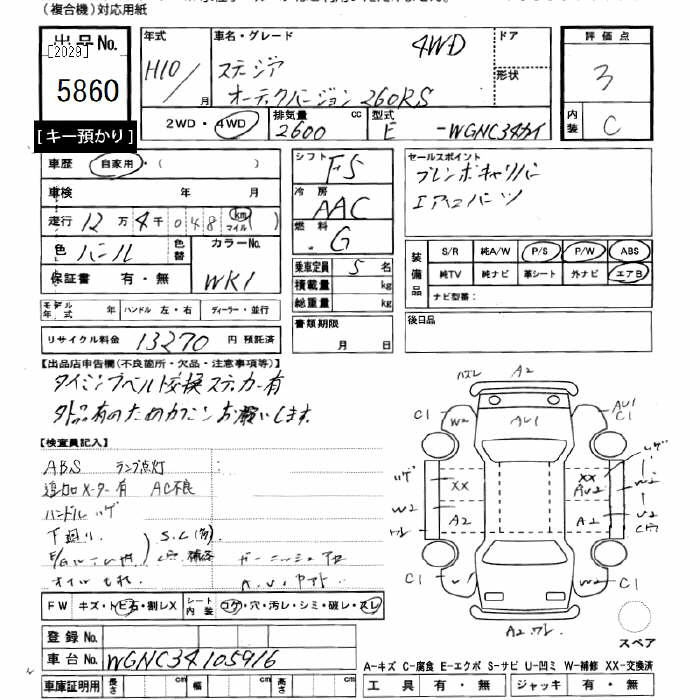 (複合機)対応用紙
出品No.
[2029]
5860
[キー預かり]
年式
H10/
月
車名・グレード
4WD
ステージア
オーテックバージョン260RS
ドア
形状
評価点
3
内装
C
2WD・4WD
排気量
2600
cc
型式
E -WGNC34カイ
車歴
自家用・( )
車検 年 月
走行 12万4千048 km マイル ( )
色 パール
色替
カラーNo.
WK1
保証書 有・無
モデル年式 年
ハンドル 左・右
ディーラー・並行
リサイクル料金 13270 円 預託済
シフト F5
冷房 AAC
燃料 G
乗車定員 5 名
積載量 kg
総重量 kg
書類期限
月 日
セールスポイント
ブレンボキャリパー
エアロパーツ
装備品
S/R 純A/W P/S P/W ABS
純TV 純ナビ 革シート 外ナビ エアB
ナビ型番:
後日品
【出品店申告欄(不良箇所・欠品・注意事項等)】
タイミングベルト交換ステッカー有
外品有のためカクニンお願いします。
【検査員記入】
ABS ランプ点灯
追加メーター有 AC不良
ハンドルスレ
下廻り
S.C(有)
オイルもれ
FW キズ・トビ石・割レX
シート内装 コゲ・穴・汚レ・シミ・破レ・スレ
登録No.
車台No. WGNC34105916
車庫証明用 長さ cm 幅 cm 高さ cm
A2
C1
W2
AU1
AU1
C1
XX
XX
AU2
W2
A2
A2
W2
U2
C1
U1
W2
C1
A2ワレ
スペア
A-キズ C-腐食 E-エクボ S-サビ U-凹ミ W-補修 XX-交換済
工具 有・無 ジャッキ 有・無